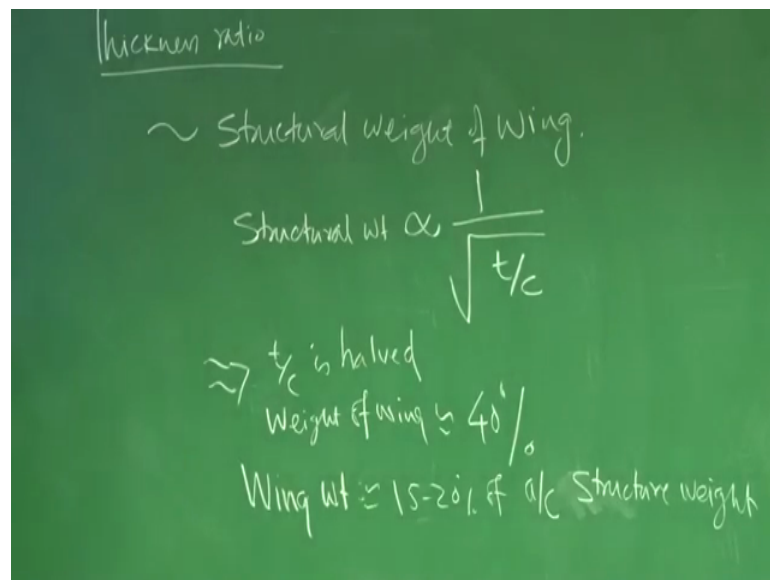 Thickness ratio
~ Structural weight of wing.
Structural wt ∝ 1/√(t/c)
⇒ t/c is halved
Weight of wing ≃ 40%
Wing wt ≃ 15-20% of a/c Structure weight